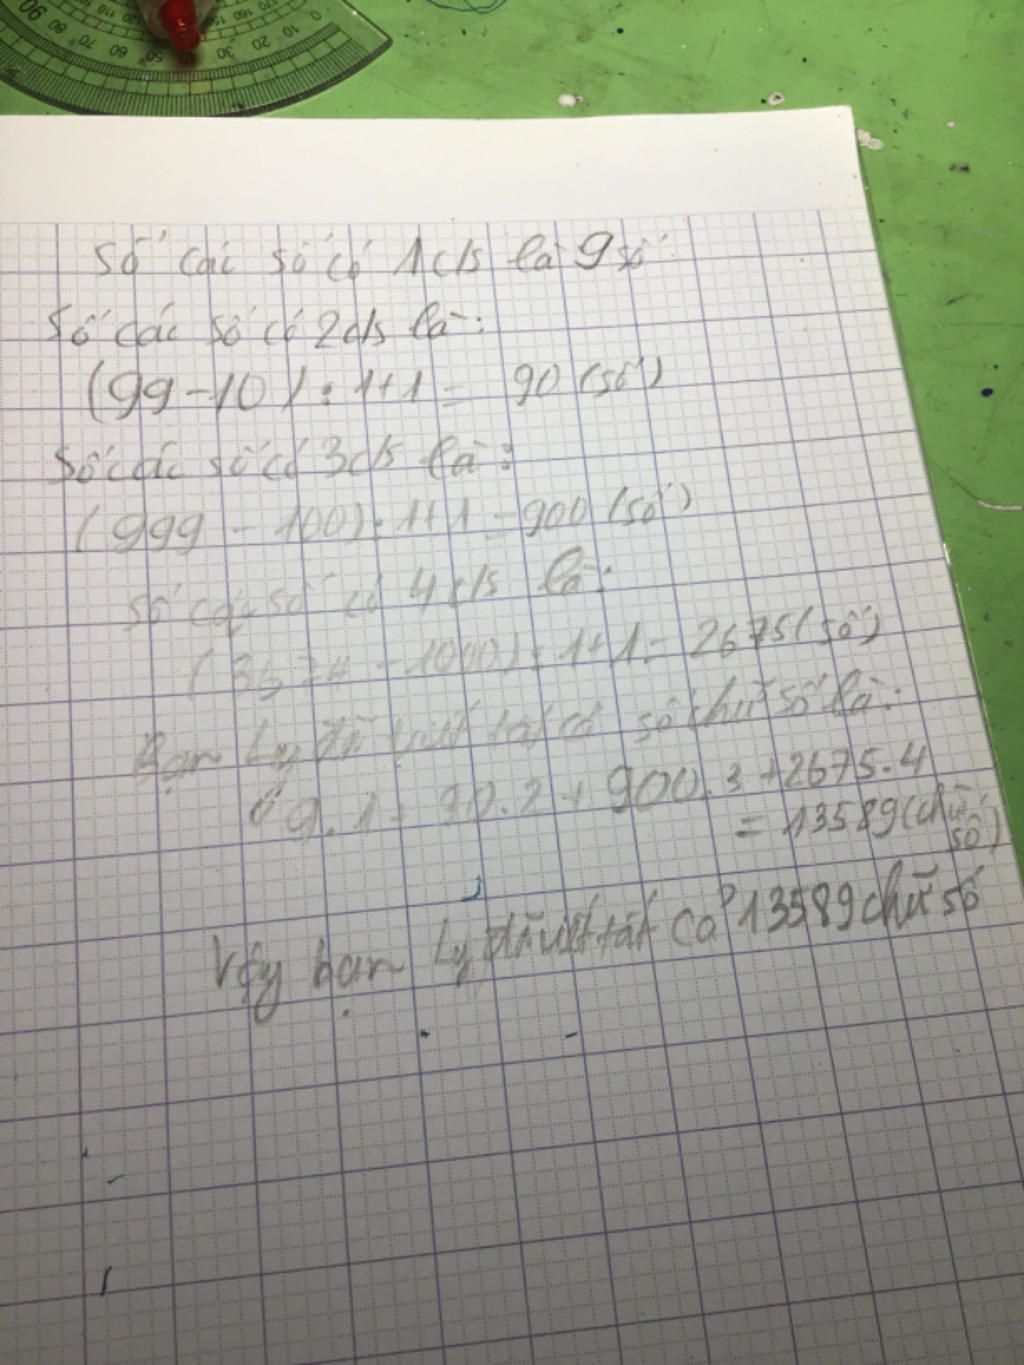 0 10 20 30 40 50 60 70 80 90
170 160 150
Số các số có 1 c/s là 9 số
Số các số có 2 c/s là:
(99-10):1+1= 90 (số)
Số các số có 3 c/s là:
(999-100):1+1=900 (số)
Số các số có 4 c/s là:
(3674-1000):1+1=2675 (số)
Bạn Ly đã viết tất cả số chữ số là:
9.1+90.2+900.3+2675.4
=13589 (chữ
số)
Vậy bạn Ly đã viết tất cả 13589 chữ số